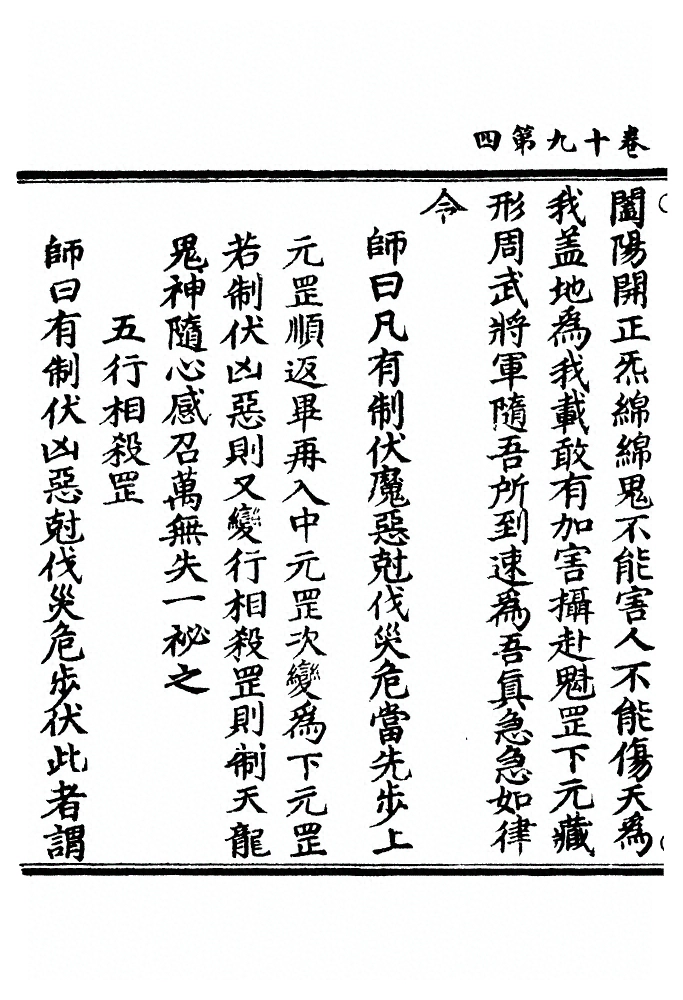 卷十九第四
闔陽開正炁綿綿鬼不能害人不能傷天為
我盖地為我載敢有加害攝赴魁罡下元藏
形周武將軍隨吾所到速為吾真急急如律
令
師曰凡有制伏魔惡尅伐災危當先步上
元罡順返畢再入中元罡次變為下元罡
若制伏凶惡則又變行相殺罡則制天龍
鬼神隨心感召萬無失一祕之
五行相殺罡
師曰有制伏凶惡尅伐災危步伏此者謂